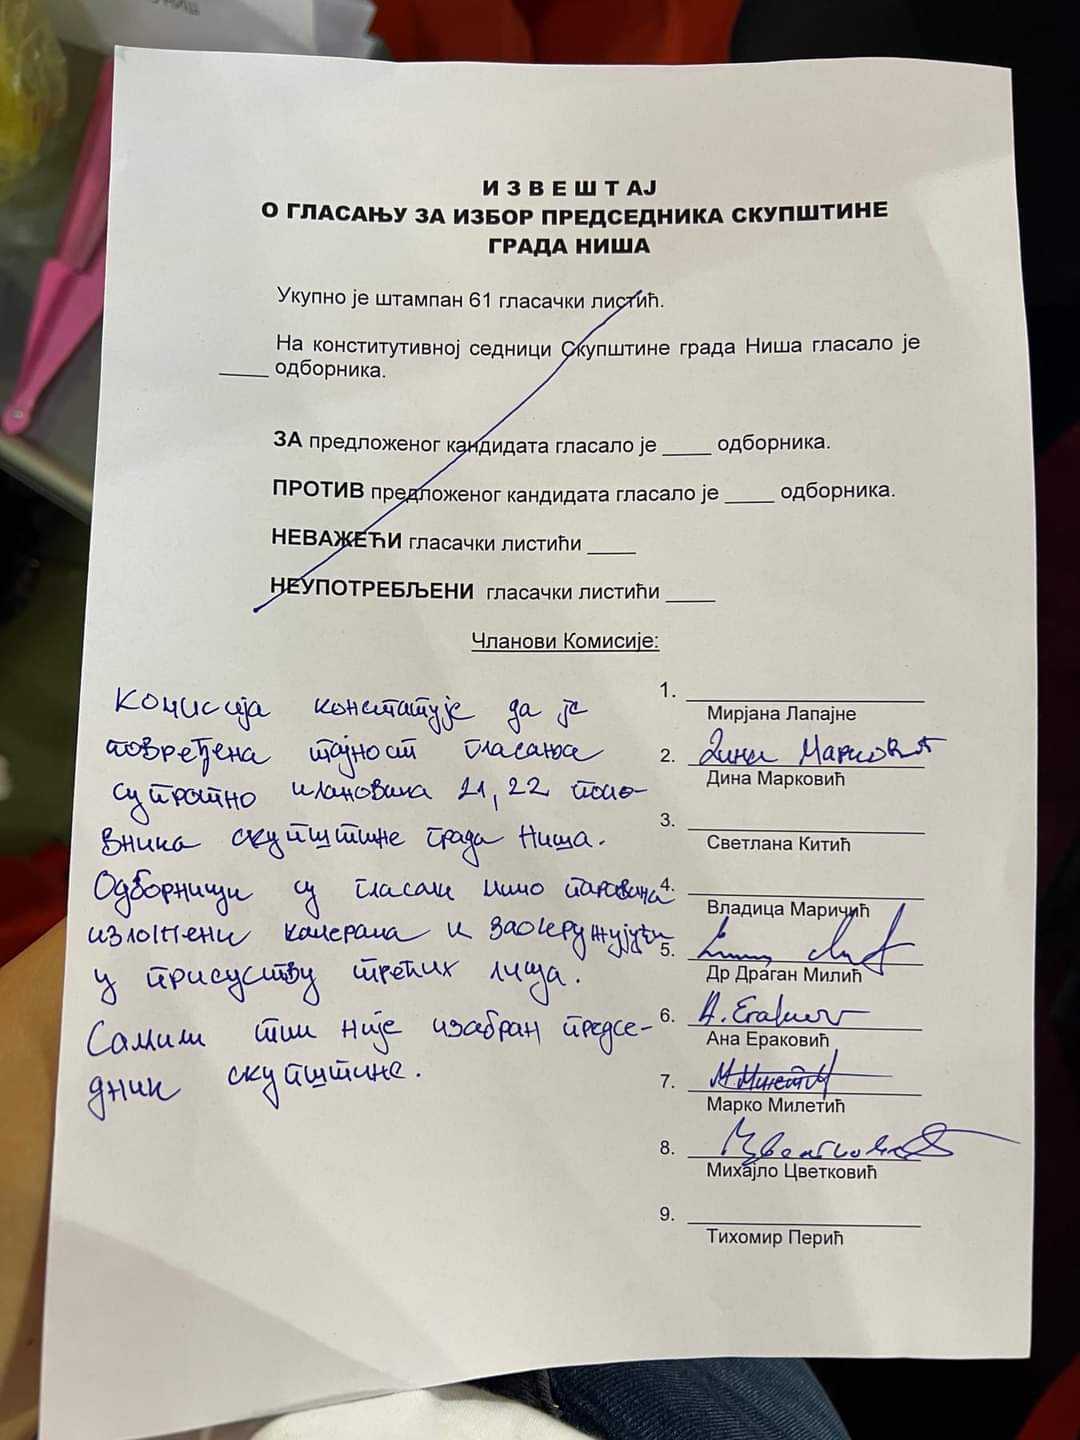 И З В Е Ш Т АЈ
О ГЛАСАЊУ ЗА ИЗБОР ПРЕДСЕДНИКА СКУПШТИНЕ
ГРАДА НИША
Укупно је штампан 61 гласачки листић.
На конститутивној седници Скупштине града Ниша гласало је
____ одборника.
ЗА предложеног кандидата гласало је ____ одборника.
ПРОТИВ предложеног кандидата гласало је ____ одборника.
НЕВАЖЕЋИ гласачки листићи ____
НЕУПОТРЕБЉЕНИ гласачки листићи ____
Чланови Комисије:
Комисија констатује да је
повређена тајност гласања
супротно члановима 21, 22 посло-
вника скупштине града Ниша.
Одборници су гласали мимо паравана
изложени камерама и заокружујући
у присуству трећих лица.
Самим тим није изабран предсе-
дник скупштине.
1.
Мирјана Лапајне
2. Дина Марковић
Дина Марковић
3.
Светлана Китић
4.
Владица Маричић
5.
Др Драган Милић
6. А. Ераковић
Ана Ераковић
7.
Марко Милетић
8. Цветковић
Михајло Цветковић
9.
Тихомир Перић